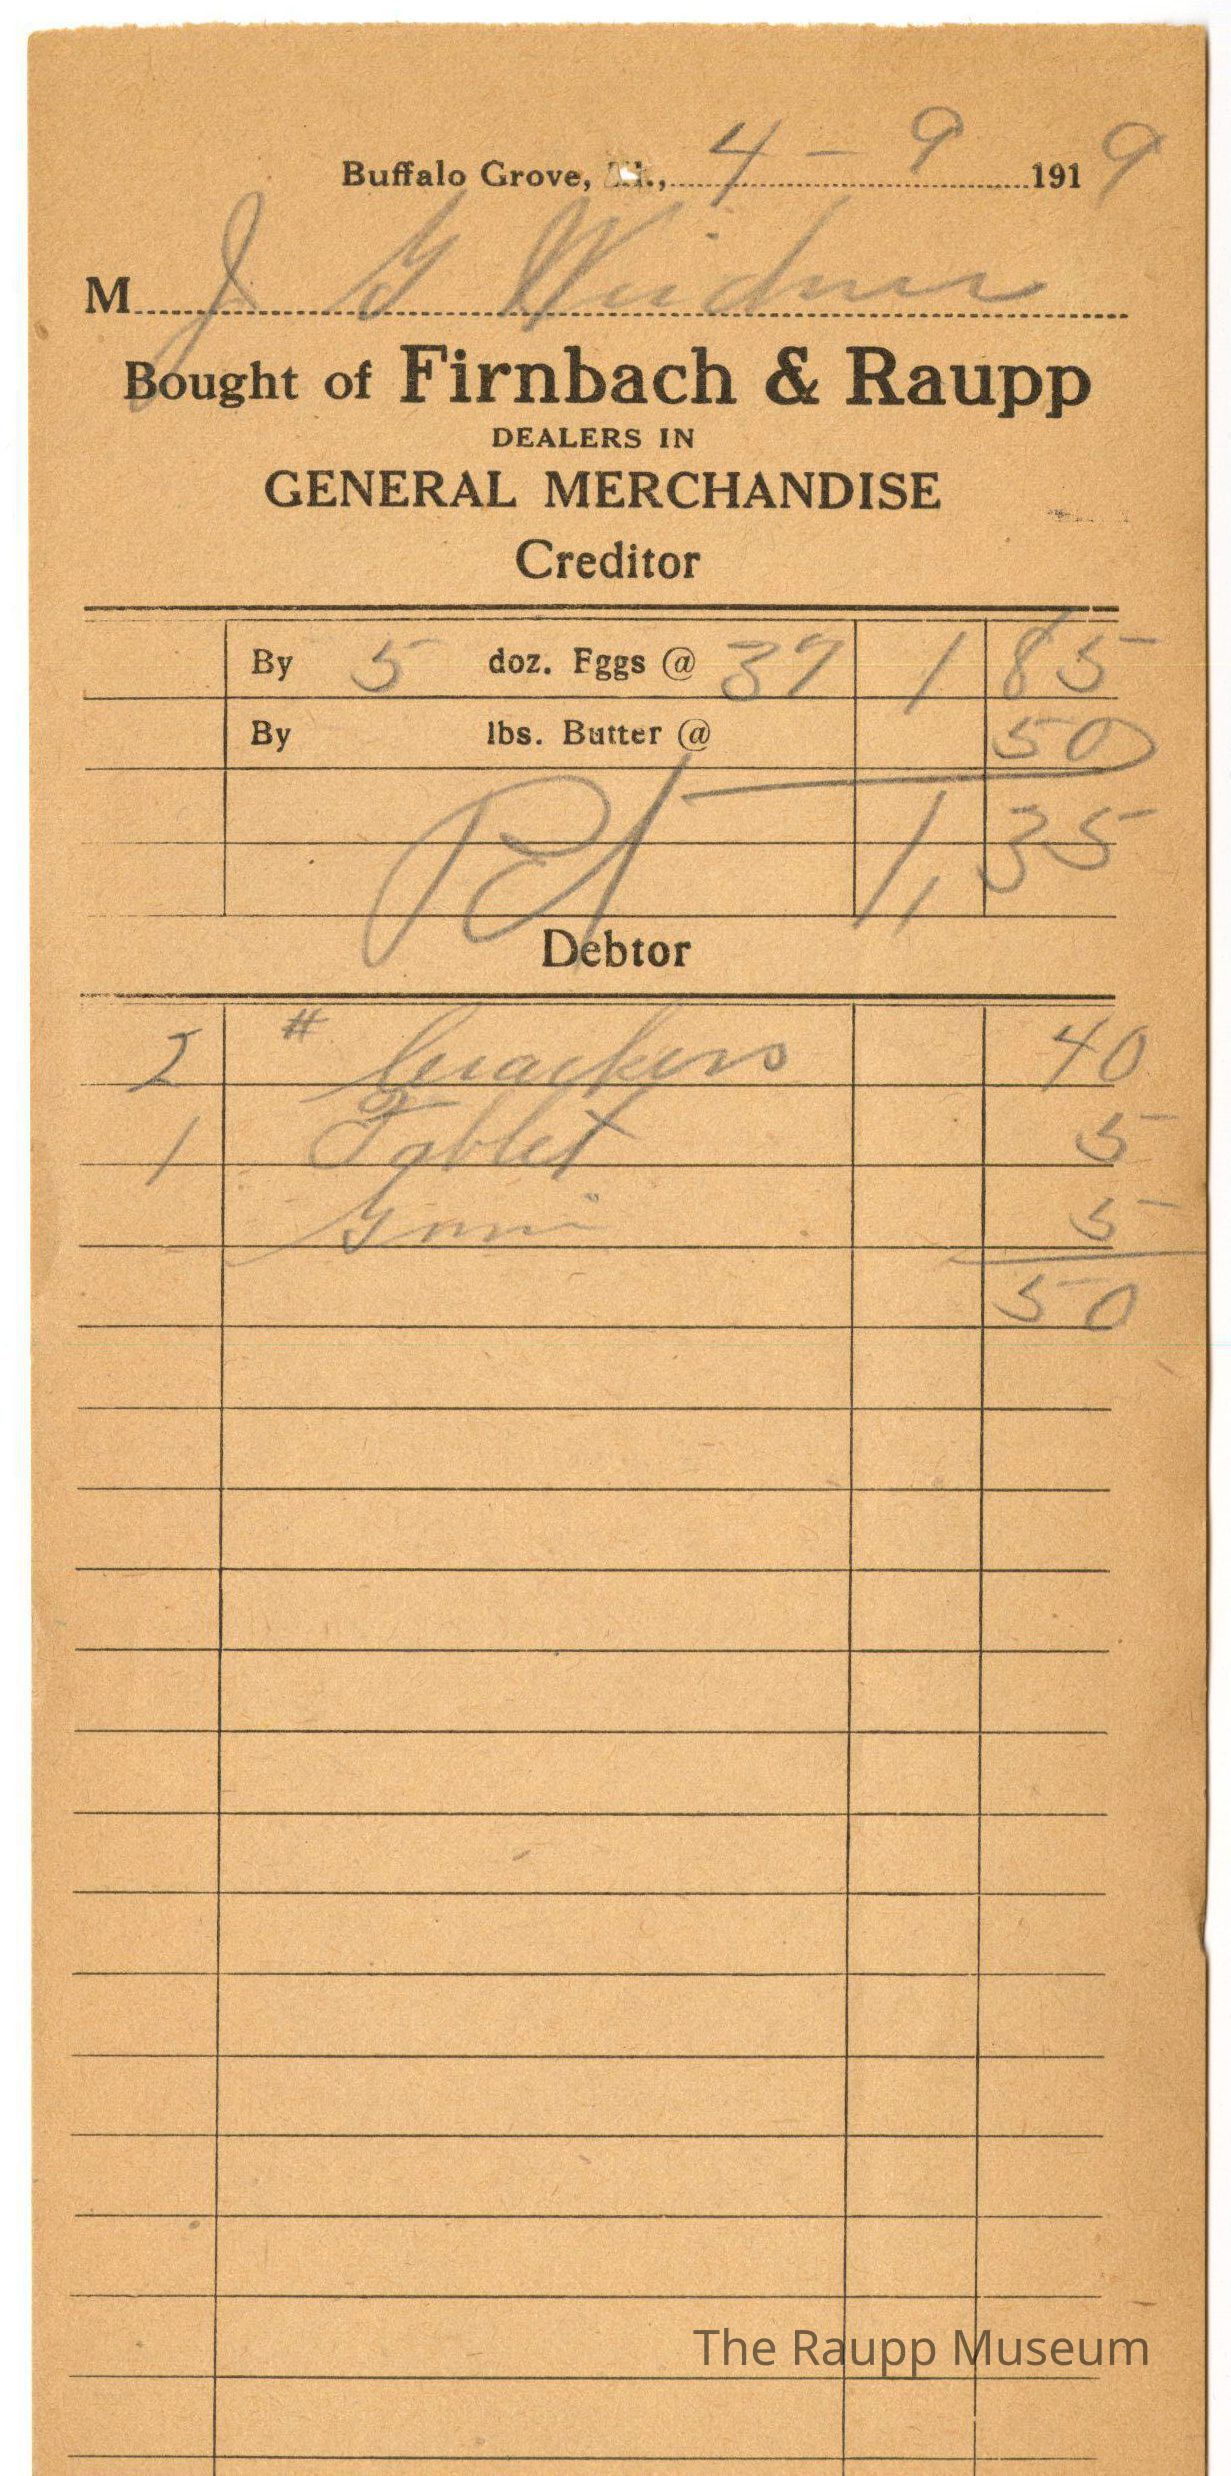 Buffalo Grove, Ill., 4 - 9 1919
M J G Weidner
Bought of Firnbach & Raupp
DEALERS IN
GENERAL MERCHANDISE
Creditor
By 5 doz. Eggs @ 37 1 85
By lbs. Butter @ 50
Pd 1,35
Debtor
2 # Crackers 40
1 Tablet 5
5
50
The Raupp Museum